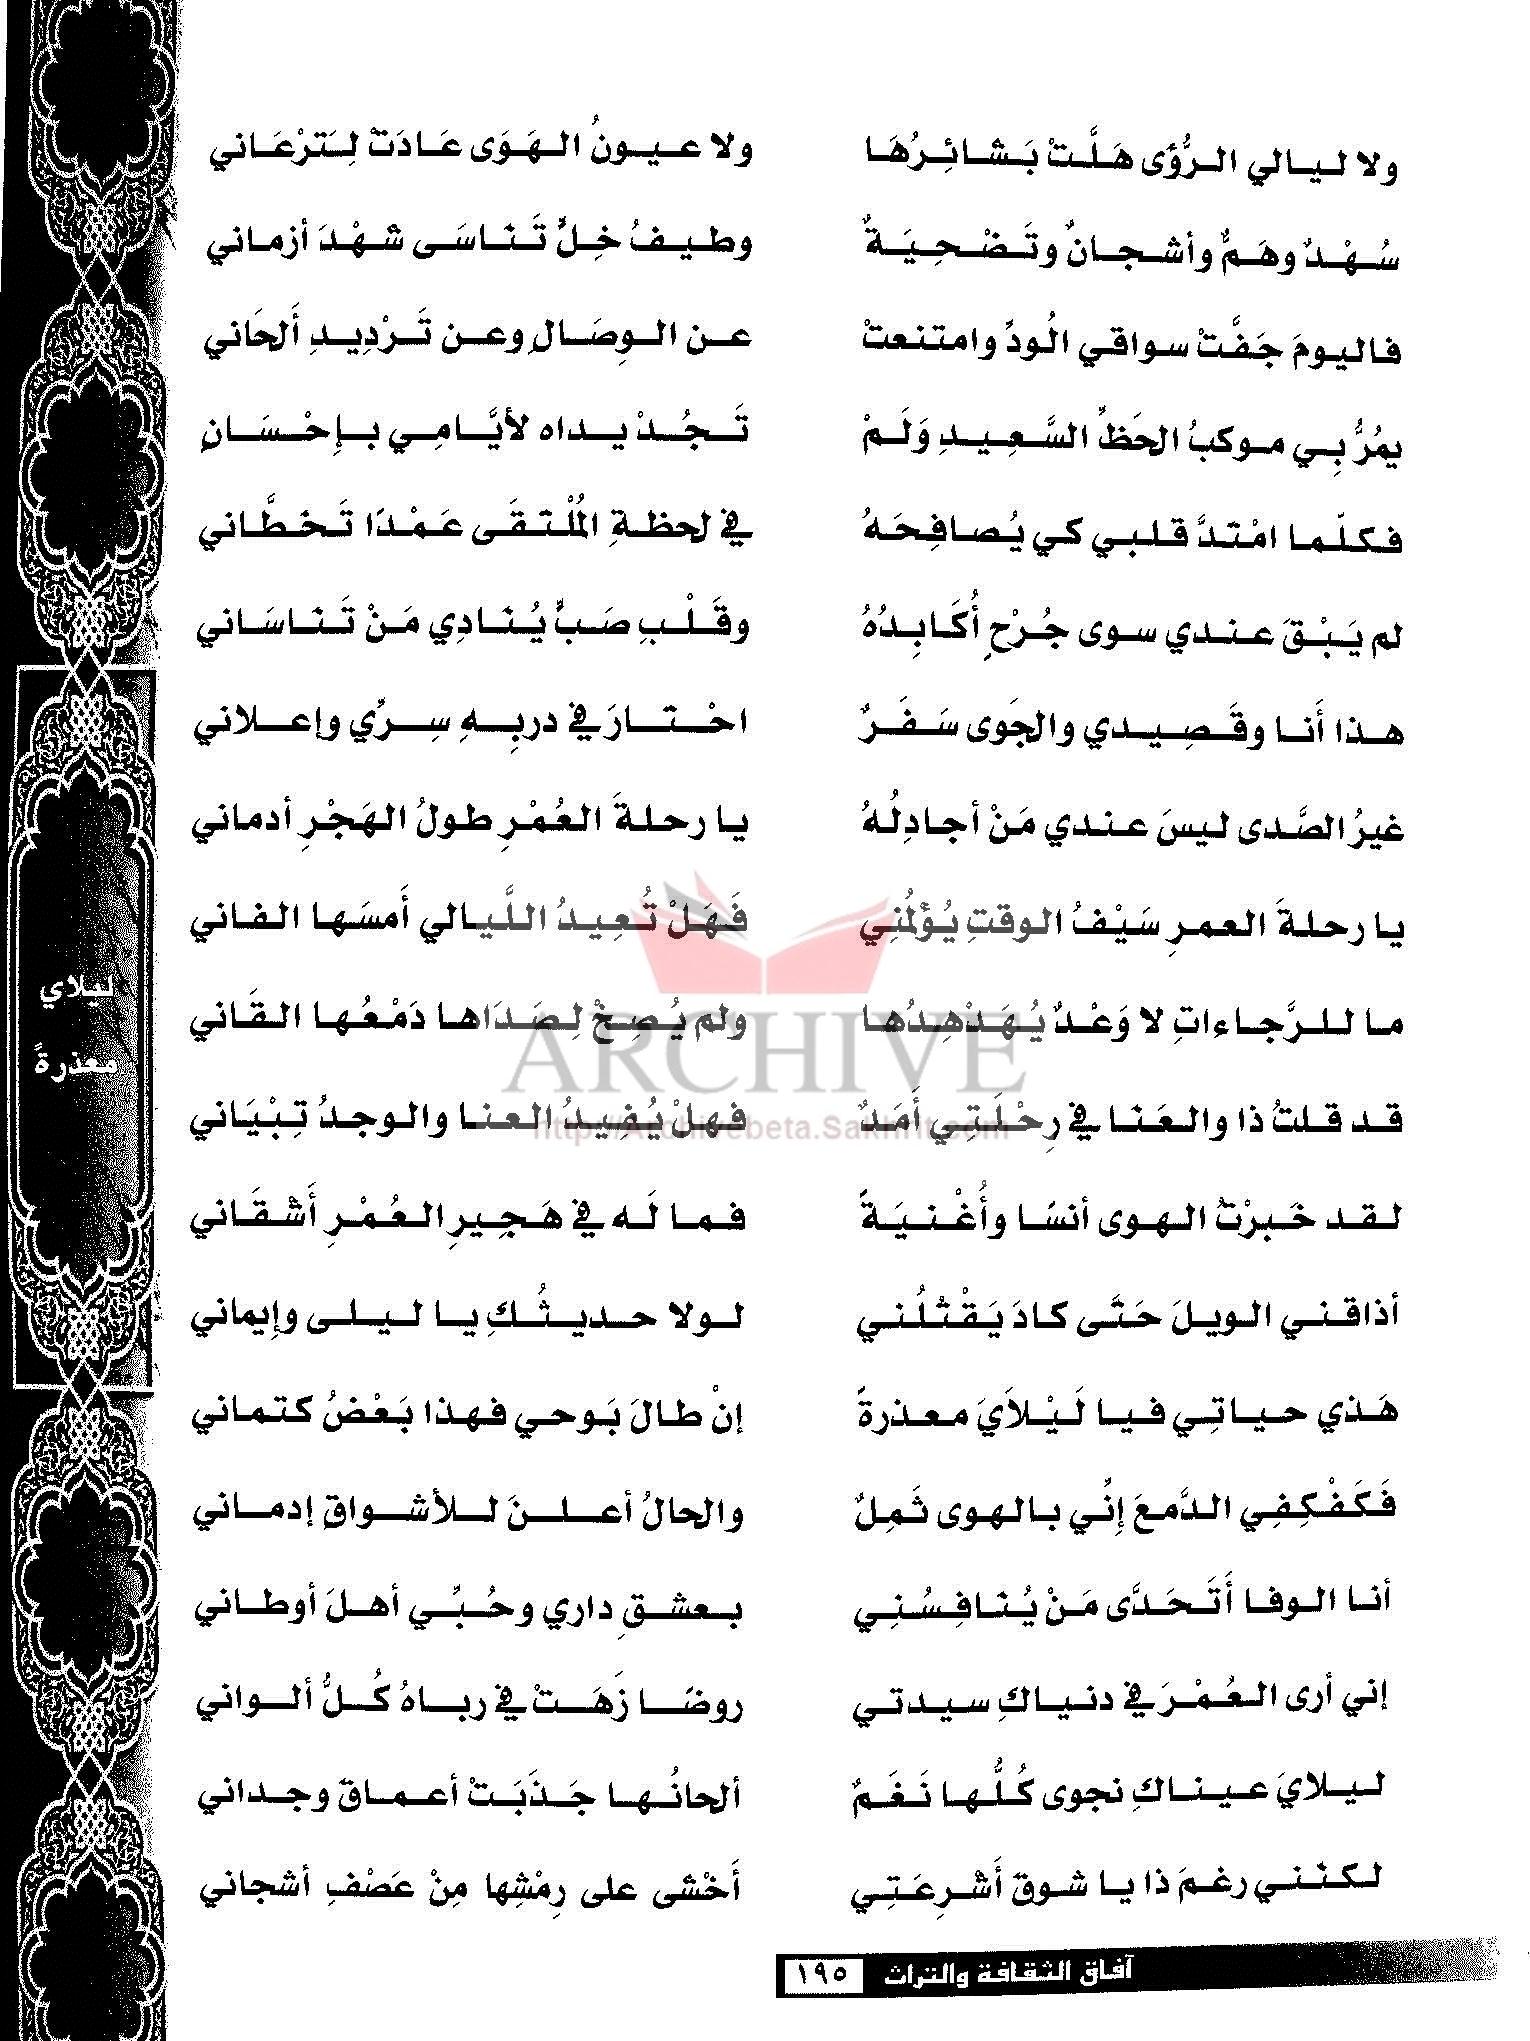 ولا ليالي الرُّؤى هَلَّتْ بَشائِرُهَا ولا عيونُ الهَوَى عَادَتْ لِتَرْعَاني
سُهْدٌ وهَمٌّ وأشجانٌ وتَضْحِيَةٌ وطيفُ خِلٍّ تَنَاسَى شهْدَ أزماني
فاليومَ جَفَّتْ سواقي الُودِّ وامتنعتْ عن الوِصَالِ وعن تَرْدِيدِ أَلحَاني
يمُرُّ بِي موكبُ الحَظِّ السَّعِيدِ وَلَمْ تَجُدْ يداه لأيَّامِي بإِحْسَانِ
فكلّما امْتدَّ قلبي كي يُصافِحَهُ في لحظةِ المُلْتقَى عَمْدًا تَخطَّاني
لم يَبْقَ عندي سوى جُرْحٍ أُكَابِدُهُ وقَلْبِ صَبٍّ يُنَادِي مَنْ تَنَاسَاني
هذا أَنا وقَصِيدي والجَوى سَفَرٌ احْتارَ في دربِهِ سِرِّي وإعلاني
غيرُ الصَّدى ليسَ عندي مَنْ أجادِلُهُ يا رحلةَ العُمْرِ طولُ الهَجْرِ أدماني
يا رحلةَ العمرِ سَيْفُ الوقتِ يُؤلمُنِي فَهَلْ تُعِيدُ اللَّيالي أَمسَها الفاني
ما للرَّجاءاتِ لا وَعْدٌ يُهَدْهِدُها ولم يُصِخْ لِصَدَاها دَمْعُها القَاني
قد قلتُ ذا والعَنَا في رِحْلَتِي أَمَدٌ فهلْ يُفِيدُ العنا والوجدُ تِبْيَاني
لقد خَبرْتُ الهوى أنسًا وأُغْنيَةً فما لَه في هَجِيرِ العُمْرِ أَشْقَاني
أذاقني الويلَ حَتَّى كادَ يَقْتُلُني لولا حديثُكِ يا ليلى وإيماني
هَذي حياتِي فيا لَيْلاَيَ معذرةً إنْ طالَ بَوحي فهذا بَعْضُ كتماني
فَكَفْكِفِي الدَّمعَ إِنِّي بالهوى ثَمِلٌ والحالُ أعلنَ للأشواقِ إدماني
أنا الوفا أَتَحَدَّى مَنْ يُنَافِسُنِي بعشقِ داري وحُبِّي أهلَ أوطاني
إني أرى العُمْرَ في دنياكِ سيدتي روضًا زَهَتْ في رباهُ كُلُّ ألواني
ليلايَ عيناكِ نجوى كُلُّها نَغَمٌ ألحانُها جَذَبَتْ أعماقَ وجداني
لكنّني رغمَ ذا يا شوق أَشْرِعَتِي أَخْشى على رِمْشِها مِنْ عَصْفِ أشجاني
ليلاي
معذرةً
ARCHIVE
http://Archivebeta.Sakhrit.com
آفاق الثقافة والتراث ١٩٥